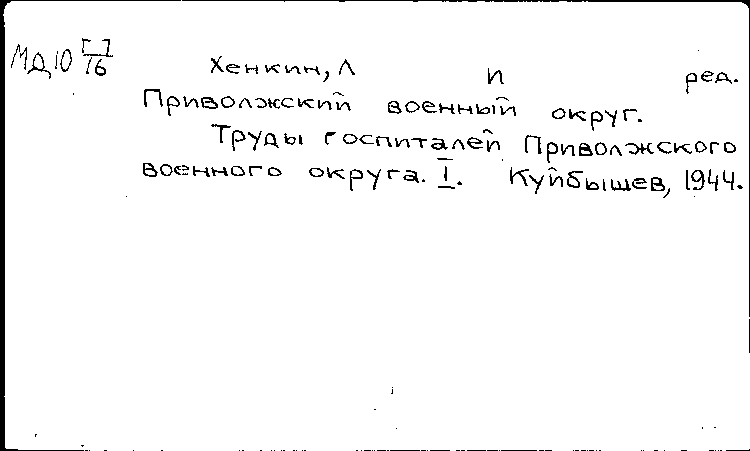 МД10 [-]/16
Хенкин, Л И ред.
Приволжский военный округ.
Труды госпиталей Приволжского
военного округа. I. Куйбышев, 1944.